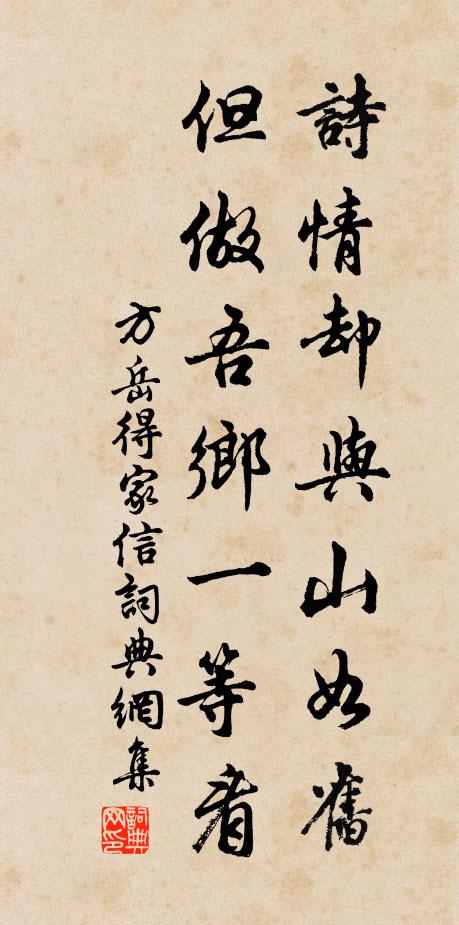 詩情却與山如舊
但做吾鄉一等看
方岳得家信詞典網集
詞典網印